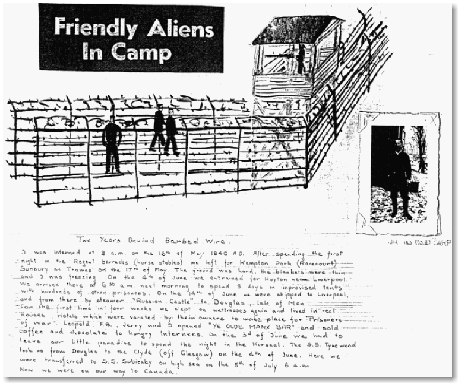 Friendly Aliens
In Camp
CAMP
Two Years Behind Barbed Wire.
I was interned at 8 a.m on the of May 1940 AD. After spending the first
night in the barracks (horse stables) we left for Kempton Park (Racecourse)
Sunbury on Thames on the 17th of May. The ground was hard, the blankets were thin
and I was freezing. On the of June we entrained for Huyton near Liverpool.
We arrived there at am next morning to spend 8 days in improvised tents
with hundreds of other prisoners. On the 14th of June we were shipped to Liverpool,
and from there by steamer "Russian Castle" to Douglas, Isle of Man.
For the first time in four weeks we slept on mattresses again and lived in real
houses, which were vacated by their owners to make place for "Prisoners
of War". Leopold Jerry and I opened "YE OLDE MANX BAR" and sold
coffee and chocolate to hungry internees. On the of June we had to
leave our little paradise to spend the night in the The S.S. Tynwald
took us from Douglas to the Clyde (off Glasgow) on the of June. Here we
were transferred to S.S. Sobieski on high sea on the of July 6 a.m
Now we were on our way to Canada.